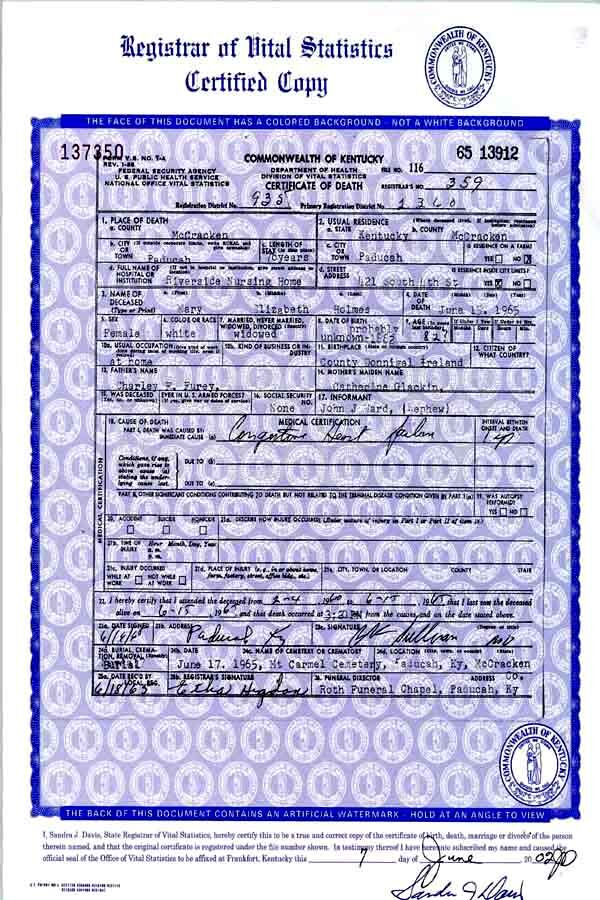 Registrar of Vital Statistics
Certified Copy
COMMONWEALTH OF KENTUCKY
THE FACE OF THIS DOCUMENT HAS A COLORED BACKGROUND - NOT A WHITE BACKGROUND
137350
FORM V.S. NO. 1-A
FEDERAL SECURITY AGENCY
U. S. PUBLIC HEALTH SERVICE
NATIONAL OFFICE VITAL STATISTICS
COMMONWEALTH OF KENTUCKY
DEPARTMENT OF HEALTH
DIVISION OF VITAL STATISTICS
CERTIFICATE OF DEATH
FILE NO. 116
65 13912
REGISTRAR'S NO. 359
Registration District No. 935 Primary Registration District No.
1. PLACE OF DEATH
a. COUNTY
McCracken
2. USUAL RESIDENCE
a. STATE b. COUNTY
Kentucky McCracken
b. CITY OR TOWN
Paducah
c. LENGTH OF STAY
6years
c. CITY OR TOWN
Paducah
e. RESIDENCE ON A FARM?
YES NO
d. FULL NAME OF HOSPITAL OR INSTITUTION
Riverside Nursing Home
d. STREET ADDRESS
421 South 4th St
YES NO
3. NAME OF DECEASED
(Type or Print)
Mary Elizabeth Holmes
4. DATE OF DEATH
June 15, 1965
5. SEX
Female
6. COLOR OR RACE
white
7. MARRIED, NEVER MARRIED, WIDOWED, DIVORCED
widowed
8. DATE OF BIRTH
probably
unknown
9. AGE
10a. USUAL OCCUPATION
at home
10b. KIND OF BUSINESS OR INDUSTRY
11. BIRTHPLACE
County Donnigal Ireland
12. CITIZEN OF WHAT COUNTRY?
13. FATHER'S NAME
Charley F. Furey.
14. MOTHER'S MAIDEN NAME
Catherine Glackin.
15. WAS DECEASED EVER IN U. S. ARMED FORCES?
16. SOCIAL SECURITY NO.
None
17. INFORMANT
John J Ward, (Nephew)
18. CAUSE OF DEATH
MEDICAL CERTIFICATION
INTERVAL BETWEEN ONSET AND DEATH
PART I. DEATH WAS CAUSED BY:
IMMEDIATE CAUSE (a) Congestive Heart Failure
Conditions, if any, which gave rise to above cause (a) stating the underlying cause last.
DUE TO (b)
DUE TO (c)
MEDICAL CERTIFICATION
PART II. OTHER SIGNIFICANT CONDITIONS CONTRIBUTING TO DEATH BUT NOT RELATED TO THE TERMINAL DISEASE CONDITION GIVEN IN PART I(a)
19. WAS AUTOPSY PERFORMED?
YES NO
20. ACCIDENT SUICIDE HOMICIDE
21a. DESCRIBE HOW INJURY OCCURRED. (Enter nature of injury in Part I or Part II of item 18.)
21b. TIME OF INJURY Hour Month, Day, Year
a. m.
p. m.
21c. INJURY OCCURRED
WHILE AT WORK NOT WHILE AT WORK
21d. PLACE OF INJURY (e.g., in or about home, farm, factory, street, office bldg., etc.)
21e. CITY, TOWN, OR LOCATION COUNTY STATE
22. I hereby certify that I attended the deceased from 2-4 1960 to 6-15 1965 that I last saw the deceased
alive on 6-15 1965 and that death occurred at from the causes and on the date stated above.
23a. DATE SIGNED
23b. ADDRESS
Paducah Ky
23c. SIGNATURE
Sullivan
24a. BURIAL, CREMATION, REMOVAL
Burial
24b. DATE
June 17, 1965,
24c. NAME OF CEMETERY OR CREMATORY
Mt Carmel Cemetery,
24d. LOCATION
Paducah, Ky, McCracken Co.
25a. DATE REC'D BY LOCAL REG.
6/18/65
25b. REGISTRAR'S SIGNATURE
Higdon
26. FUNERAL DIRECTOR ADDRESS
Roth Funeral Chapel, Paducah, Ky
COMMONWEALTH OF KENTUCKY
THE BACK OF THIS DOCUMENT CONTAINS AN ARTIFICIAL WATERMARK - HOLD AT AN ANGLE TO VIEW
I, Sandra J. Davis, State Registrar of Vital Statistics, hereby certify this to be a true and correct copy of the certificate of birth, death, marriage or divorce of the person
therein named, and that the original certificate is registered under the file number shown. In testimony thereof I have hereunto subscribed my name and caused the
official seal of the Office of Vital Statistics to be affixed at Frankfort, Kentucky this 7 day of June 2002
Sandra J Davis